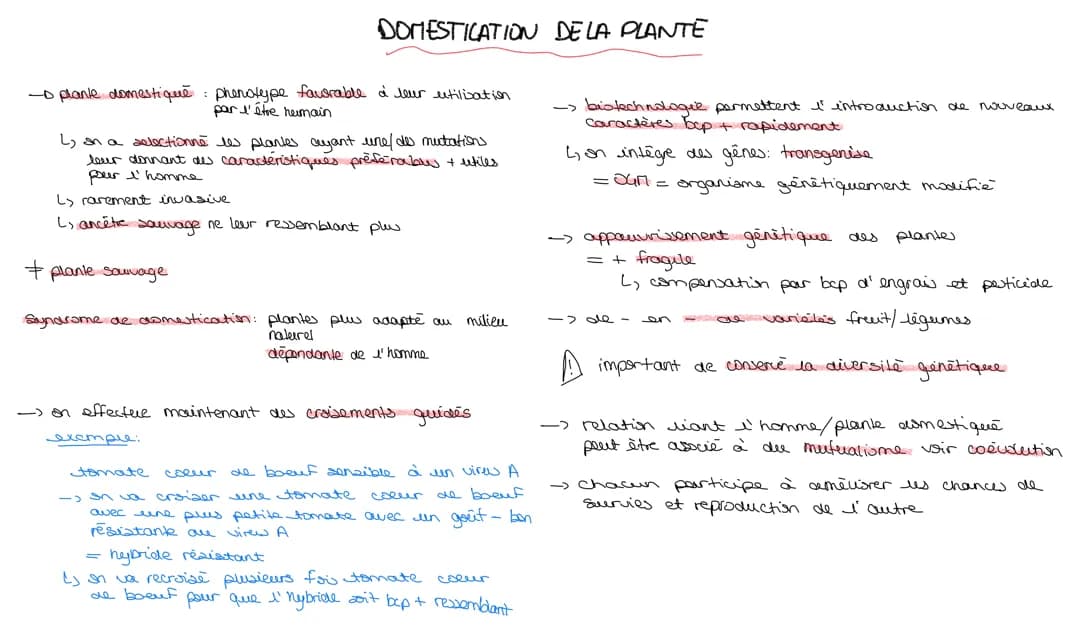 DOMESTICATION DE LA PLANTE
→ plante domestiqué : phénotype favorable à leur utilisation
par l'être humain
↳ on a selectionné les plantes ayant une/des mutations
leur donnant des caractéristiques préférables + utiles
pour l'homme
↳ rarement invasive
↳ ancêtre sauvage ne leur ressemblant plus
≠ plante sauvage
Syndrome de domestication: plantes plus adapté au milieu
naturel
dépendante de l'homme
→ on effectue maintenant des croisements guidés
exemple:
tomate coeur de boeuf sensible à un virus A
→ on va croiser une tomate coeur de boeuf
avec une plus petite tomate avec un goût - bon
résistante au virus A
= hybride résistant
↳ on va recroisé plusieurs fois tomate coeur
de boeuf pour que l'hybride soit bcp + ressemblant
→ biotechnologie permettent l'introduction de nouveaux
caractères bcp + rapidement
↳ on intège des gênes: transgenèse
= OGM = organisme génétiquement modifié
→ appauvrissement génétique des plantes
= + fragile
↳ compensation par bcp d'engrais et pesticide
→ de - en - de variétés fruit/légumes
⚠ important de conservé la diversité génétique
→ relation liant l'homme/plante domestiqué
peut être associé à du mutualisme voir coévolution
→ chacun participe à améliorer les chances de
survies et reproduction de l'autre